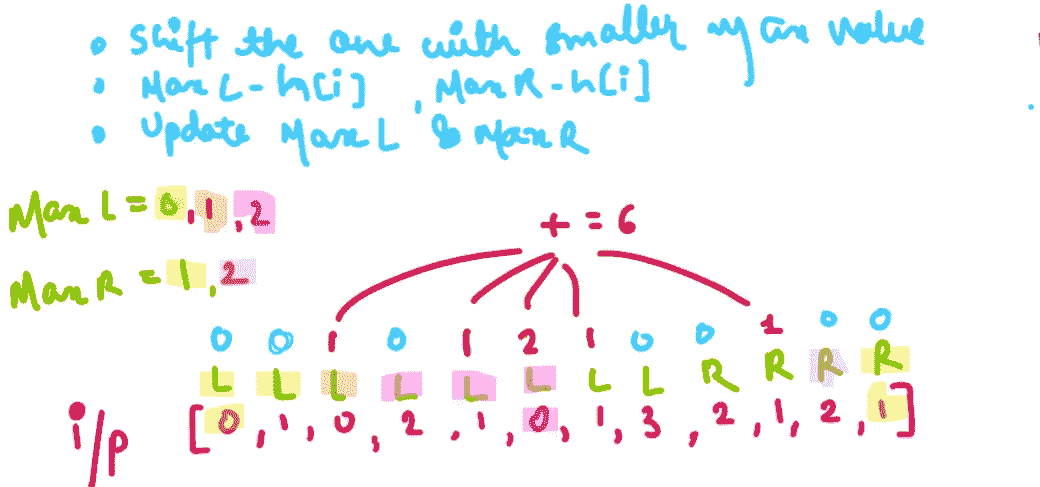 • Shift the one with smaller max value
• Max L - h[i] , Max R - h[i]
• Update Max L & Max R
Max L = 0, 1, 2
+ = 6
Max R = 1, 2
0 0 1 0 1 2 1 0 0 1 0 0
L L L L L L L L R R R R
i/p [0, 1, 0, 2, 1, 0, 1, 3, 2, 1, 2, 1]